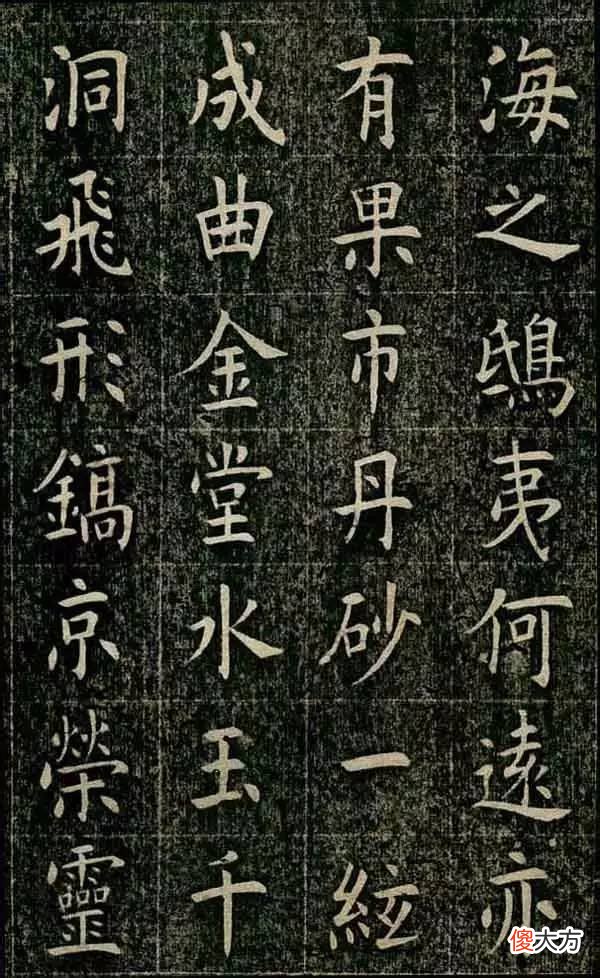 海之鴟夷何遠亦
有果市丹砂一絃
成曲金堂水玉千
洞飛形鎬京榮靈
傻大方